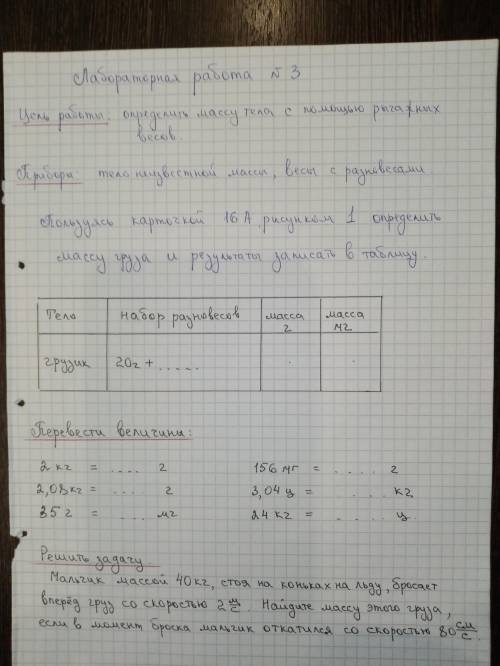 Лабораторная работа № 3
Цель работы: определить массу тела с помощью рычажных
весов.
Приборы: тело неизвестной массы, весы с разновесами.
Пользуясь карточкой 16А, рисунком 1 определить
массу груза и результаты записать в таблицу.
Тело набор разновесов масса г масса мг
грузик 20г + .....
Перевести величины:
2 кг = .... г 156 мг = .... г
2,08кг = ... г 3,04 ц = .... кг
35 г = .... мг 24 кг = .... ц.
Решить задачу
Мальчик массой 40кг, стоя на коньках на льду, бросает
вперёд груз со скоростью 2 м/с. Найдите массу этого груза,
если в момент броска мальчик откатился со скоростью 80 см/с.